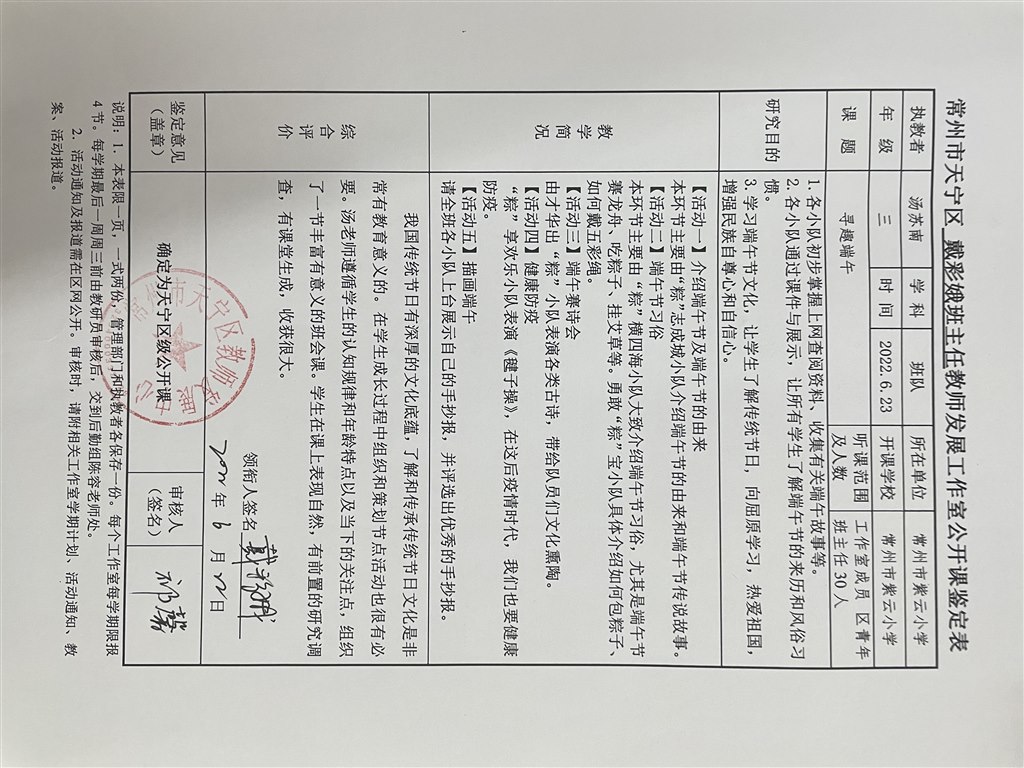 常州市天宁区 戴彩娥班主任教师发展工作室公开课鉴定表
执教者 汤苏南 学 科 班队 所在单位 常州市紫云小学
年 级 三 时 间 2022.6.23 开课学校 常州市紫云小学
课 题 寻趣端午 听课范围及人数 工作室成员 区青年班主任 30 人
研究目的
1. 各小队初步掌握上网查阅资料、收集有关端午故事等。
2. 各小队通过课件与展示，让所有学生了解端午节的来历和风俗习
惯。
3. 学习端午节文化，让学生了解传统节日，向屈原学习，热爱祖国，
增强民族自尊心和自信心。
教学简况
【活动一】介绍端午节及端午节的由来
本环节主要由“粽”志成城小队介绍端午节的由来和端午节传说故事。
【活动二】端午节习俗
本环节主要由“粽”横四海小队大致介绍端午节习俗，尤其是端午节
赛龙舟、吃粽子、挂艾草等。勇敢“粽”宝小队具体介绍如何包粽子、
如何戴五彩绳。
【活动三】端午赛诗会
由才华出“粽”小队表演各类古诗，带给队员们文化熏陶。
【活动四】健康防疫
“粽”享欢乐小队表演《毽子操》，在这后疫情时代，我们也要健康
防疫。
【活动五】描画端午
请全班各小队上台展示自己的手抄报，并评选出优秀的手抄报。
综合评价
我国传统节日有深厚的文化底蕴，了解和传承传统节日文化是非
常有教育意义的。在学生成长过程中组织和策划节点活动也很有必
要。汤老师遵循学生的认知规律和年龄特点以及当下的关注点，组织
了一节丰富有意义的班会课。学生在课上表现自然，有前置的研究调
查，有课堂生成，收获很大。
领衔人签名
2022 年 6 月 22 日
鉴定意见（盖章） 确定为天宁区级公开课 审核人（签名）
常州市天宁区教师发展中心
说明：1. 本表限一页，一式两份，管理部门和执教者各保存一份。每个工作室每学期限报
4 节。每学期最后一周周三前由教研员审核后，交到后勤组陈容老师处。
2. 活动通知及报道需在区网公开。审核时，请附相关工作室学期计划、活动通知、教
案、活动报道。